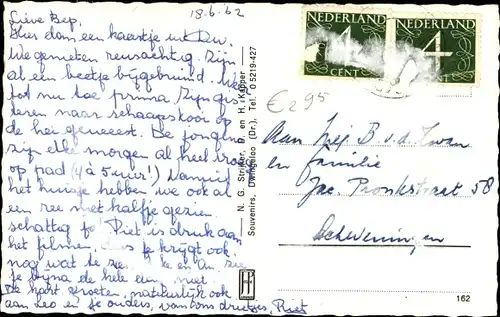 18-6-62
Lieve Bep,
Hier dan een kaartje uit Dw.
We genieten reusachtig. Zijn
al een beetje bijgebruind. We
tot nu toe prima. Zijn gis-
teren naar schaapskooi op
de hei geweest. De jongens
zijn elke morgen al heel vroeg
op pad (4 à 5 uur!) Vanuit
het huisje hebben we ook al
een ree met kalfje gezien
schattig fo! Piet is druk aan
het filmen, dus je krijgt ook
nog wat te zien. en An. zie
je bijna de hele niet.
De hart. groeten, natuurlijk ook
aan Leo en je ouders, van ons drietjes, Riet
NEDERLAND
4
CENT
NEDERLAND
4
CENT
€ 2,95
Aan Mej B. v. d. Zwan
en familie
Jac. Pronkstraat 58
Scheveningen
N. G. Strijker, D. en H. Kapper
Souvenirs, Dwingeloo (Dr.), Tel. 0 5219-427
162